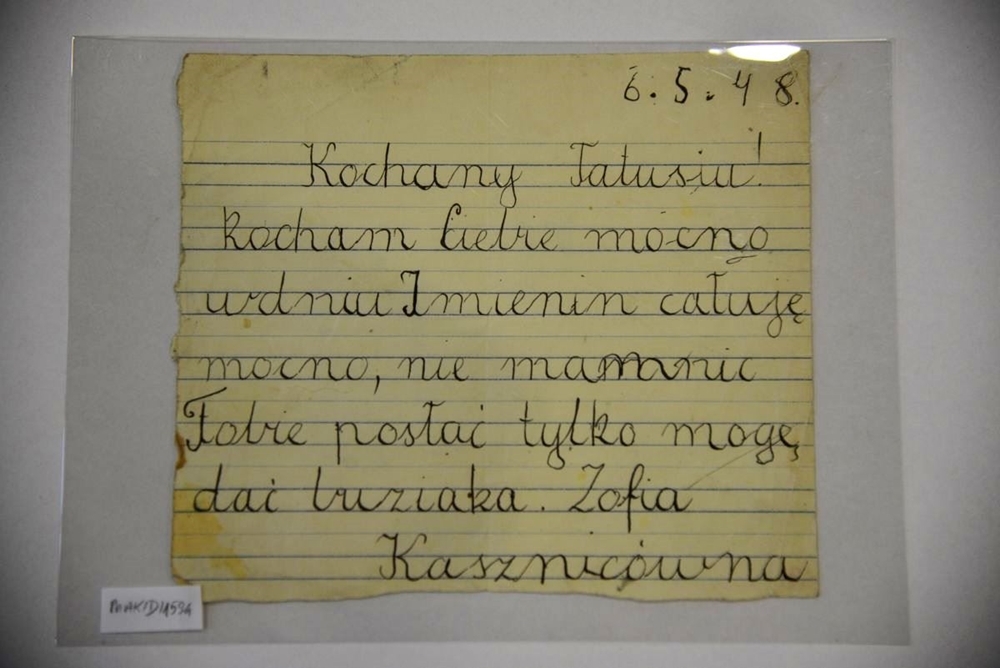 6.5.48.
Kochany Tatusiu!
kocham Ciebie mócno
wdniu Imienin całuję
mocno, nie mam nic
Tobie posłać tylko mogę
dać buziaka. Zofia
Kasznicówna